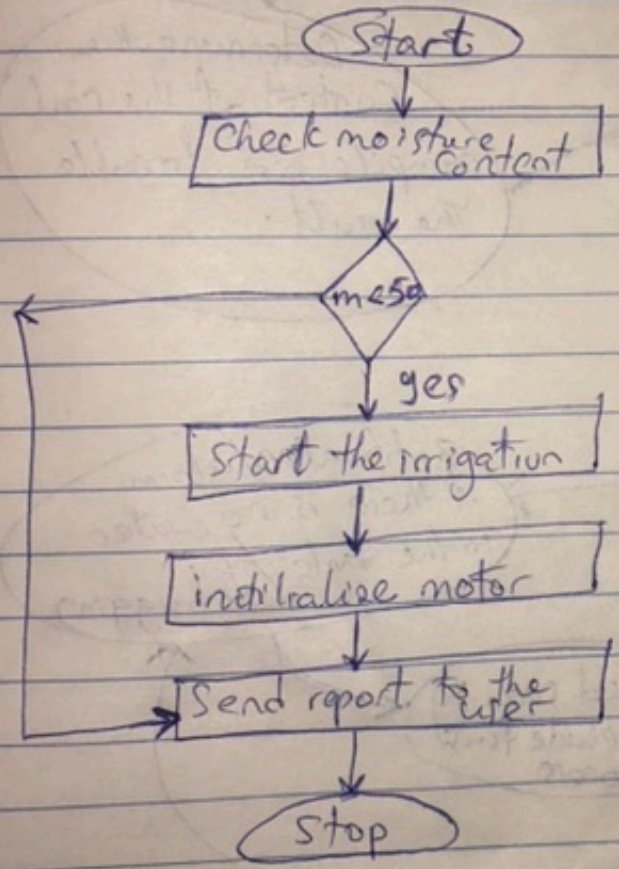 Start
Check moisture
Content
m<50
yes
Start the irrigation
Send report to the
user
Stop